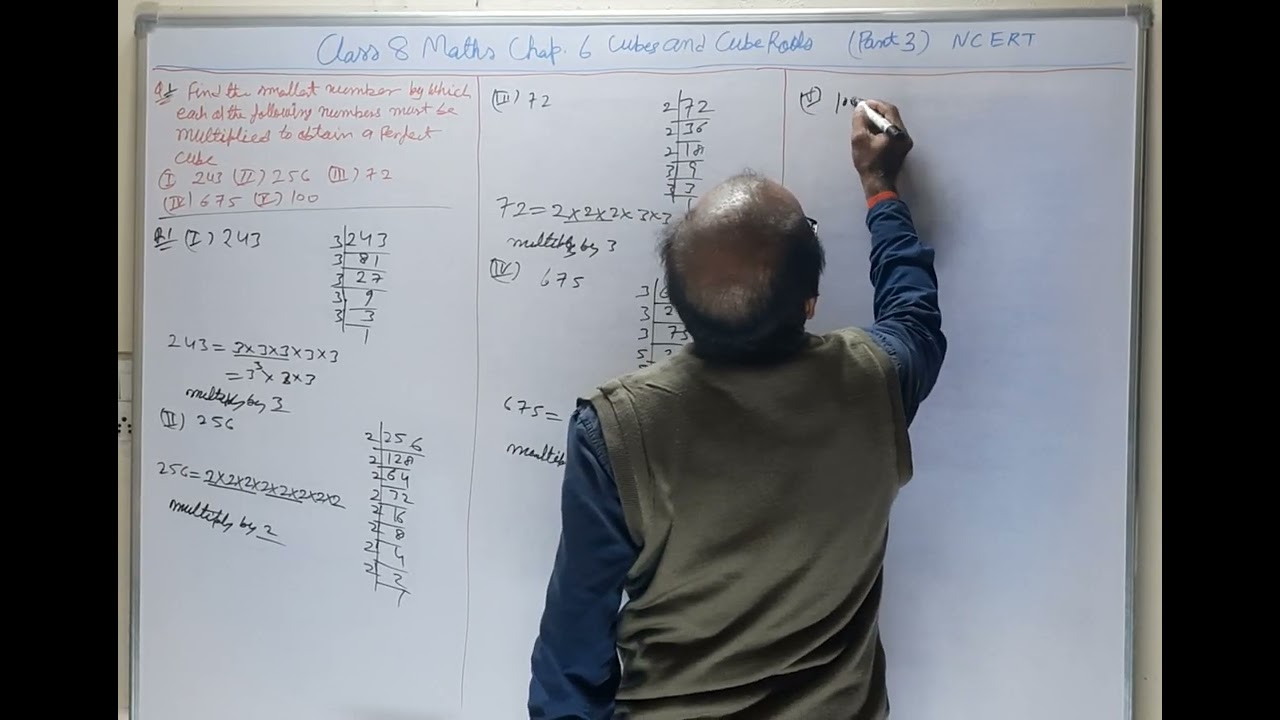 Class 8 Maths Chap. 6 Cubes and Cube Roots (Part 3) NCERT
Find the smallest number by which
each of the following numbers must be
multiplied to obtain a Perfect
Cube
(I) 243 (II) 256 (III) 72
(IV) 675 (V) 100
(I) 243
3 | 243
3 | 81
3 | 27
3 | 9
3 | 3
1
243 = 3×3×3×3×3
= 3³×3×3
multiply by 3
(II) 256
2 | 256
2 | 128
2 | 64
2 | 32
2 | 16
2 | 8
2 | 4
2 | 2
1
256 = 2×2×2×2×2×2×2×2
multiply by 2
(III) 72
2 | 72
2 | 36
2 | 18
3 | 9
3 | 3
1
72 = 2×2×2×3×3
multiply by 3
(IV) 675
3
3 | 2
3 | 75
5
675 =
(V)